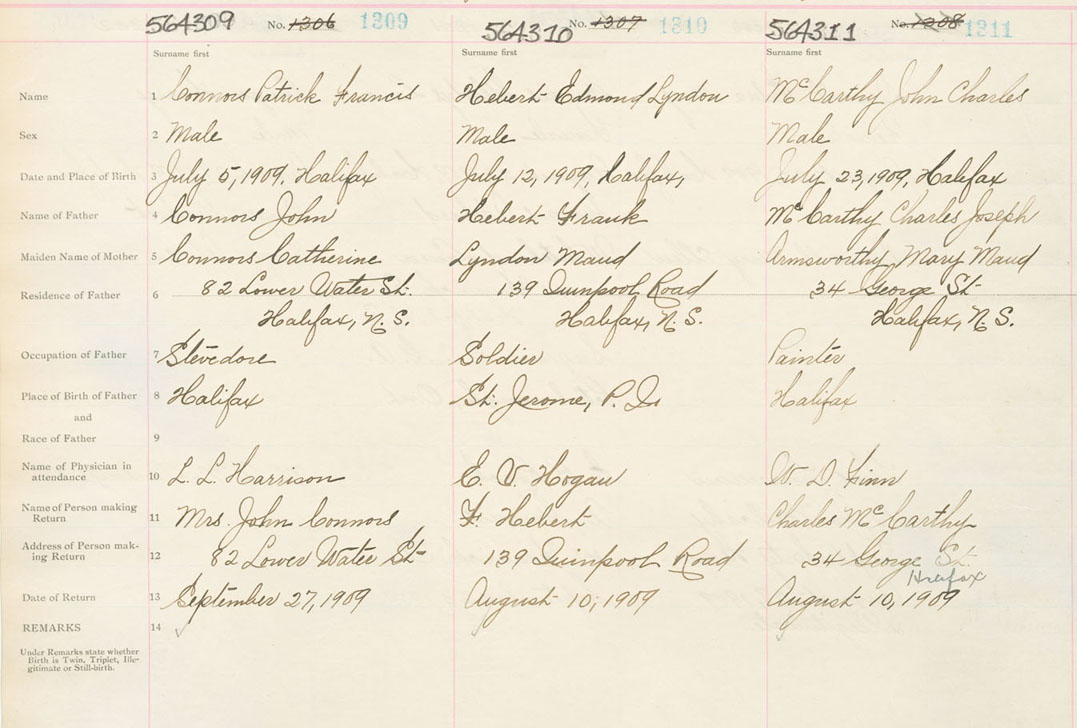 564309 No. 1306 1309 564310 No. 1307 1310 564311 No. 1308 1311
Surname first Surname first Surname first
Name 1 Connors Patrick Francis Hebert Edmond Lyndon McCarthy John Charles
Sex 2 Male Male Male
Date and Place of Birth 3 July 5, 1909, Halifax July 12, 1909, Halifax, July 23, 1909, Halifax
Name of Father 4 Connors John Hebert Frank McCarthy Charles Joseph
Maiden Name of Mother 5 Connors Catherine Lyndon Maud Armsworthy, Mary Maud
Residence of Father 6 82 Lower Water St. 139 Quinpool Road 34 George St.
Halifax, N. S. Halifax, N. S. Halifax, N. S.
Occupation of Father 7 Stevedore Soldier Painter
Place of Birth of Father 8 Halifax St. Jerome, P. Q. Halifax
and
Race of Father 9
Name of Physician in
attendance 10 L. L. Harrison E. V. Hogan W. D. Finn
Name of Person making
Return 11 Mrs. John Connors F. Hebert Charles McCarthy
Address of Person mak-
ing Return 12 82 Lower Water St. 139 Quinpool Road 34 George St.
Halifax
Date of Return 13 September 27, 1909 August 10, 1909 August 10, 1909
REMARKS 14
Under Remarks state whether
Birth is Twin, Triplet, Ille-
gitimate or Still-birth.